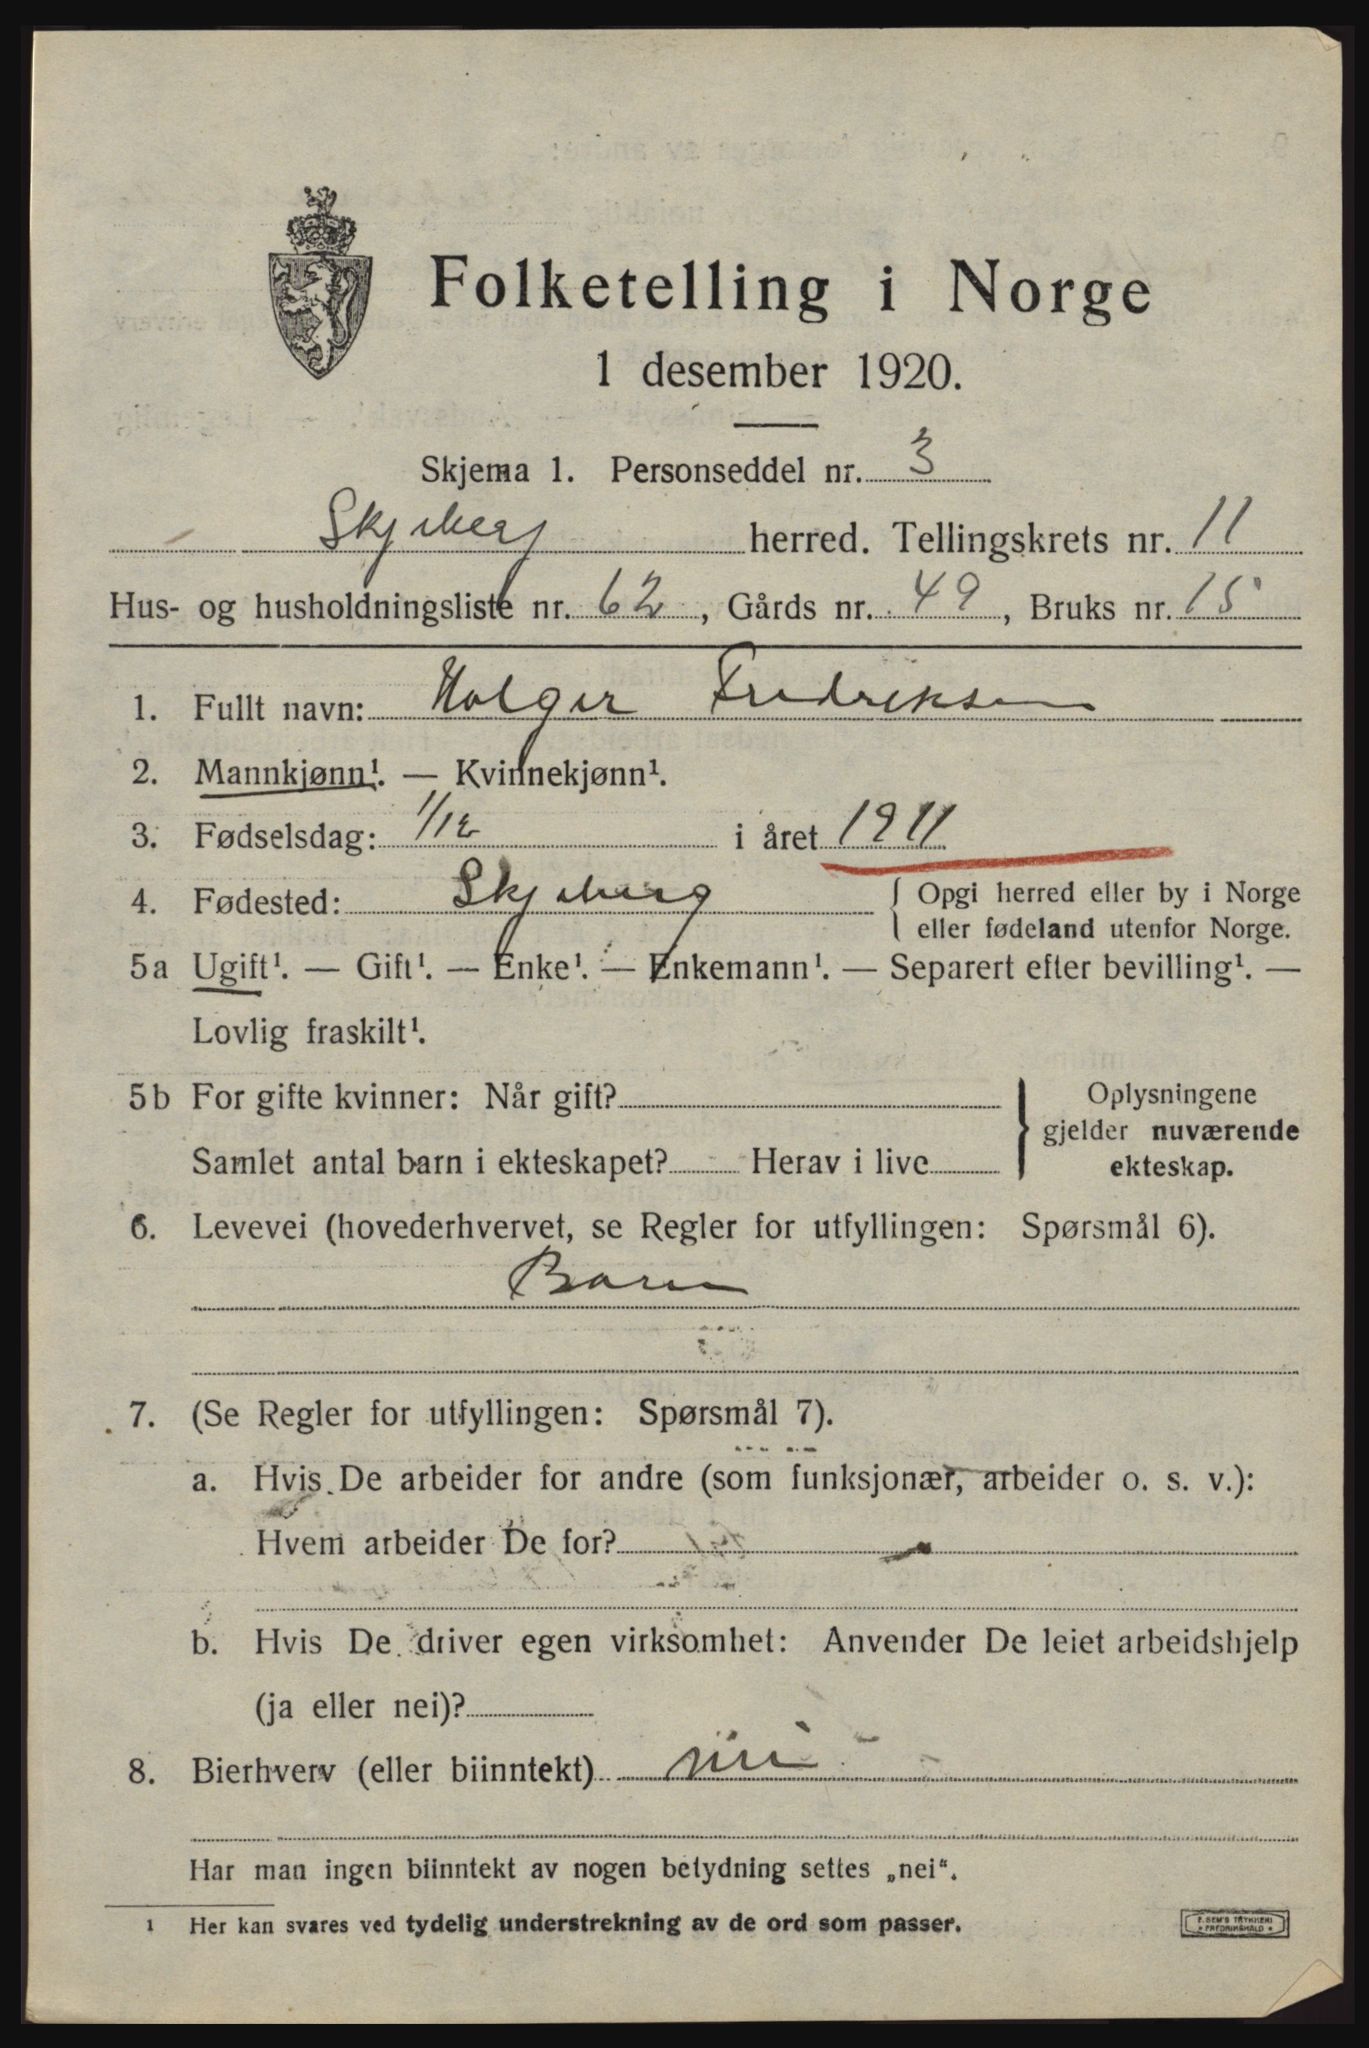 Folketelling i Norge
1 desember 1920.
Skjema 1. Personseddel nr. 3
Skjeberg herred. Tellingskrets nr. 11
Hus- og husholdningsliste nr. 62, Gårds nr. 49, Bruks nr. 15
1. Fullt navn: Holger Fredriksen
2. Mannkjønn¹. — Kvinnekjønn¹.
3. Fødselsdag: 1/12 i året 1911
4. Fødested: Skjeberg { Opgi herred eller by i Norge
eller fødeland utenfor Norge.
5a Ugift¹. — Gift¹. — Enke¹. — Enkemann¹. — Separert efter bevilling¹. —
Lovlig fraskilt¹.
5b For gifte kvinner: Når gift? Oplysningene
gjelder nuværende
Samlet antal barn i ekteskapet? Herav i live
ekteskap.
6. Levevei (hovederhvervet, se Regler for utfyllingen: Spørsmål 6).
Barn
7. (Se Regler for utfyllingen: Spørsmål 7).
a. Hvis De arbeider for andre (som funksjonær, arbeider o. s. v.):
Hvem arbeider De for?
b. Hvis De driver egen virksomhet: Anvender De leiet arbeidshjelp
(ja eller nei)?
8. Bierhverv (eller biinntekt) nei
Har man ingen biinntekt av nogen betydning settes „nei“.
1 Her kan svares ved tydelig understrekning av de ord som passer.
E. SEM'S TRYKKERI
FREDRIKSHALD